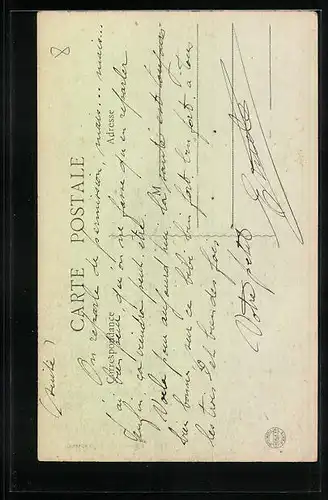 8
CARTE POSTALE
Correspondance
Adresse
(suite)
On reparle de permission, mais... mais...
j'ai bien peur qu'on ne fasse qu'en reparler
Enfin ça viendra peut être.
Voilà pour aujourd'hui. La santé est toujours
bien bonne, sur ce bibi bien fort, bien fort à tous
les trois et bien des fois
Votre